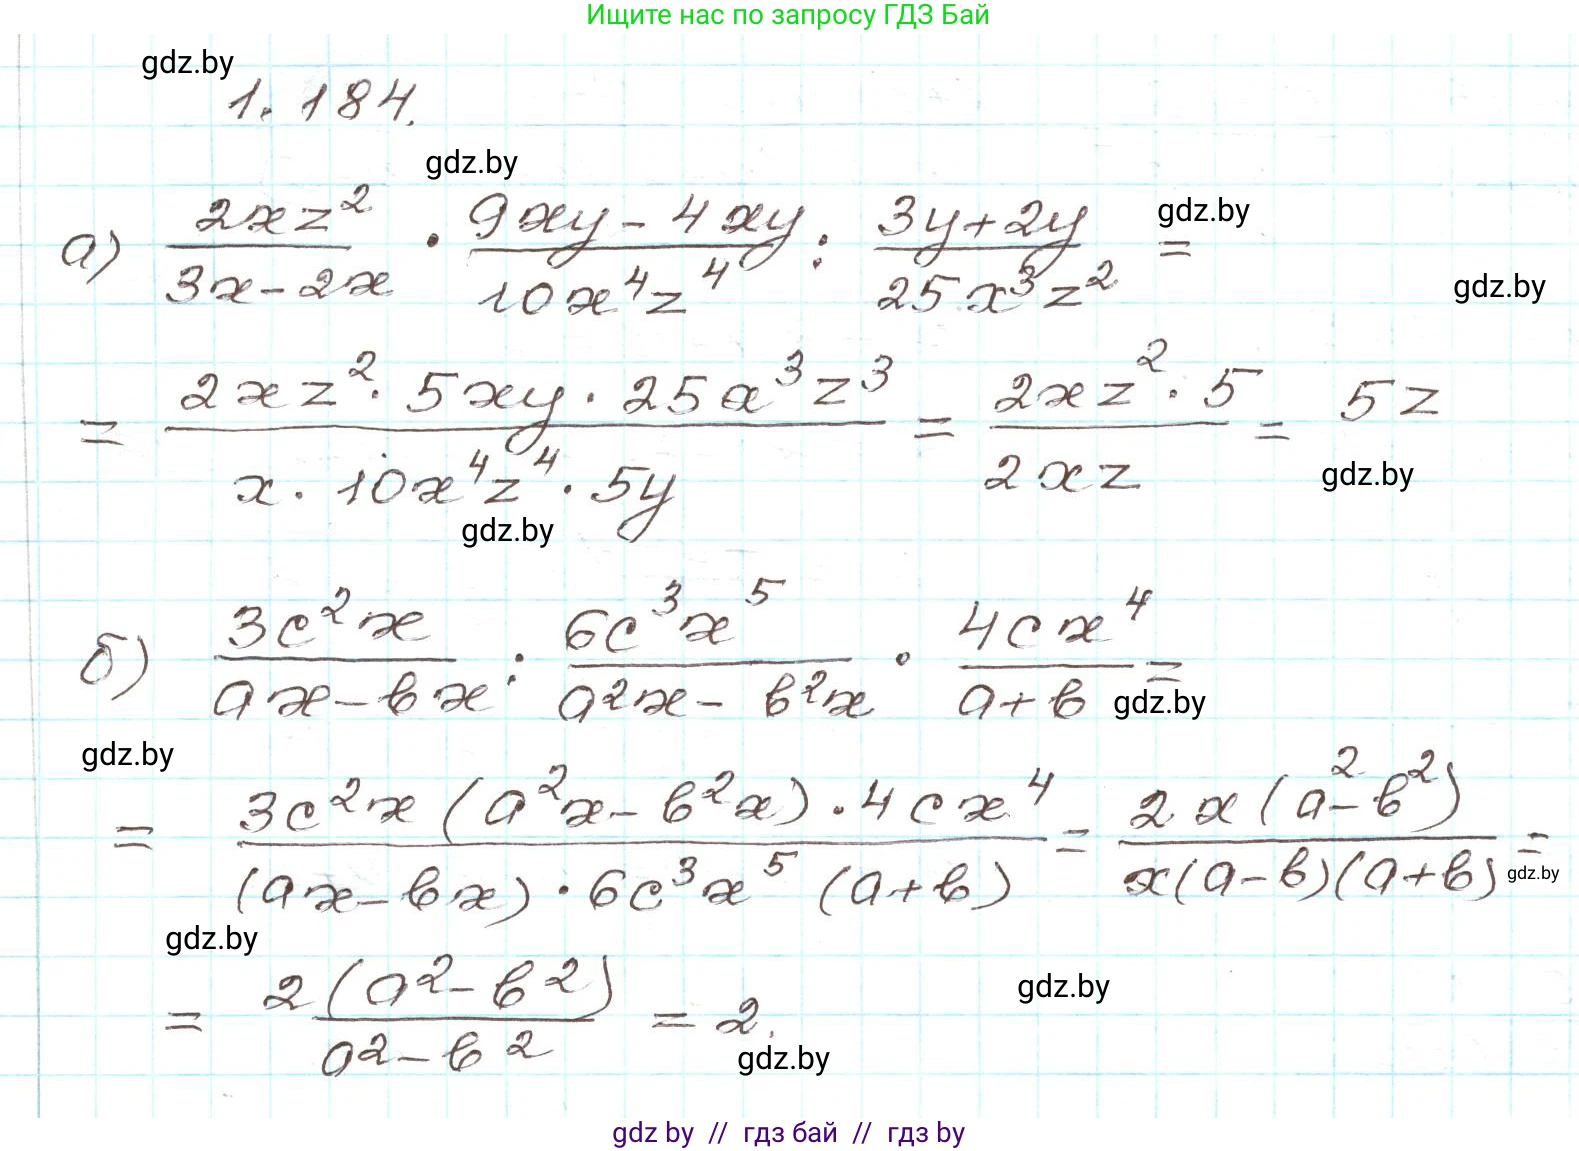 Ищите нас по запросу ГДЗ Бай
gdz.by
1.184.
gdz.by
а) \frac{2xz^2}{3x-2x} · \frac{9xy-4xy}{10x^4z^4} : \frac{3y+2y}{25x^3z^2} =
gdz.by
gdz.by
= \frac{2xz^2 · 5xy · 25x^3z^3}{x · 10x^4z^4 · 5y} = \frac{2xz^2 · 5}{2xz} = 5z
gdz.by
gdz.by
б) \frac{3c^2x}{ax-bx} : \frac{6c^3x^5}{a^2x-b^2x} · \frac{4cx^4}{a+b} =
gdz.by
gdz.by
= \frac{3c^2x(a^2x-b^2x)·4cx^4}{(ax-bx)·6c^3x^5(a+b)} = \frac{2x(a^2-b^2)}{x(a-b)(a+b)} =
gdz.by
gdz.by
= \frac{2(a^2-b^2)}{a^2-b^2} = 2.
gdz.by
gdz.by
gdz by // гдз бай // гдз by